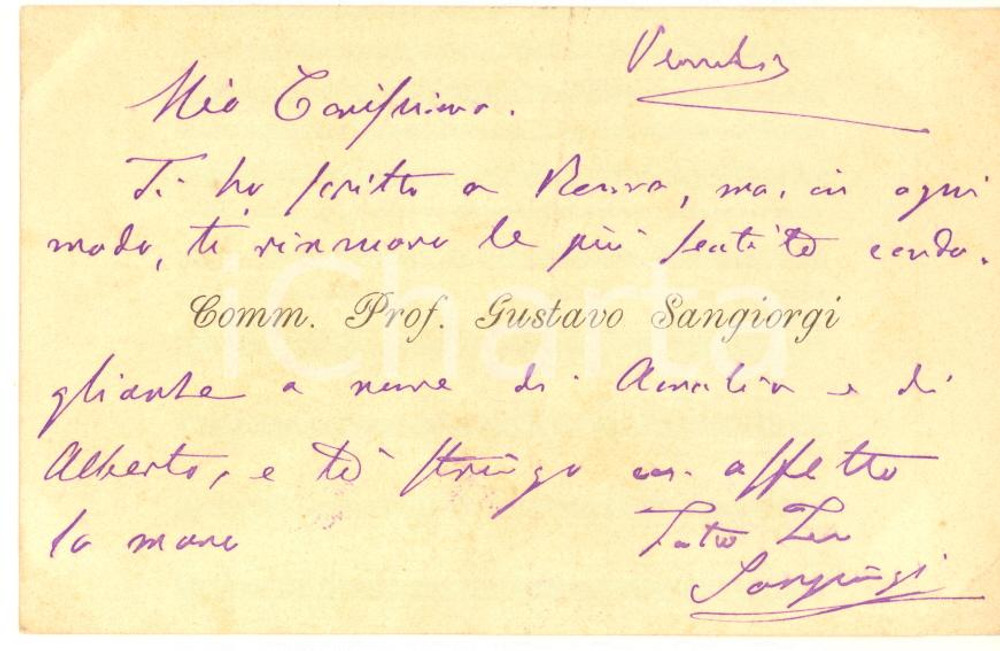 Venerdì
Mio Carissimo.
Ti ho scritto a Roma, ma, in ogni
modo, ti rinnovo le più sentite condo.
Comm. Prof. Gustavo Sangiorgi
glianze a nome di Amalia e di
Alberto, e ti stringo con affetto
la mano
Tutto Tuo
Sangiorgi
iCharta